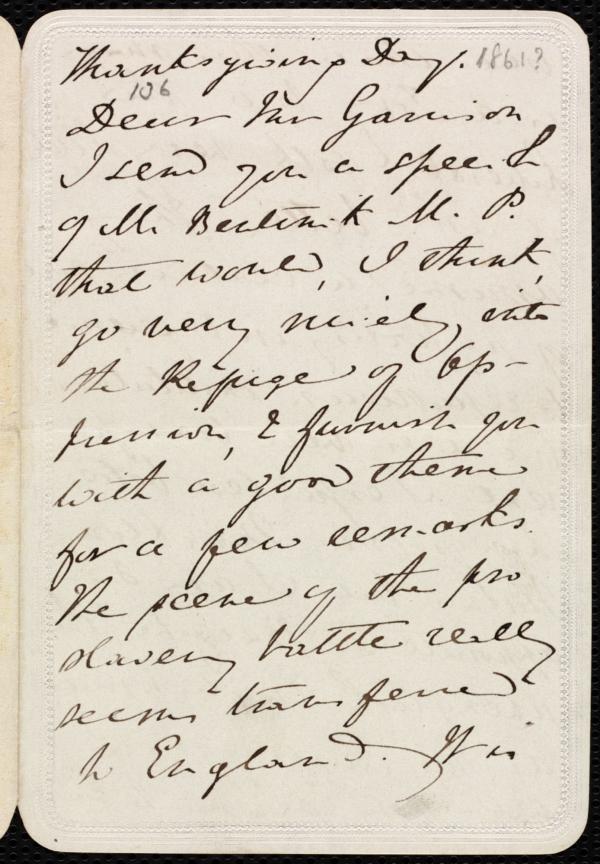 Thanksgiving Day. 1861?
106
Dear Mr Garrison
I send you a speech
of Mr Bentinck M. P.
that would, I think,
go very nicely into
the Refuge of Op-
pression, & furnish you
with a good theme
for a few remarks.
The scene of the pro
slavery battle really
seems transferred
to England. It is